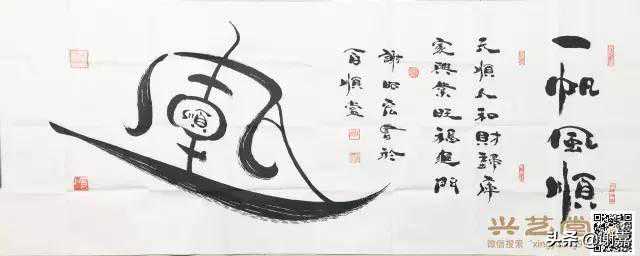 一帆風順
天順人和財歸庫
家興業旺福進門
書於
百順堂
風
順
兴艺堂
微信搜索
头条